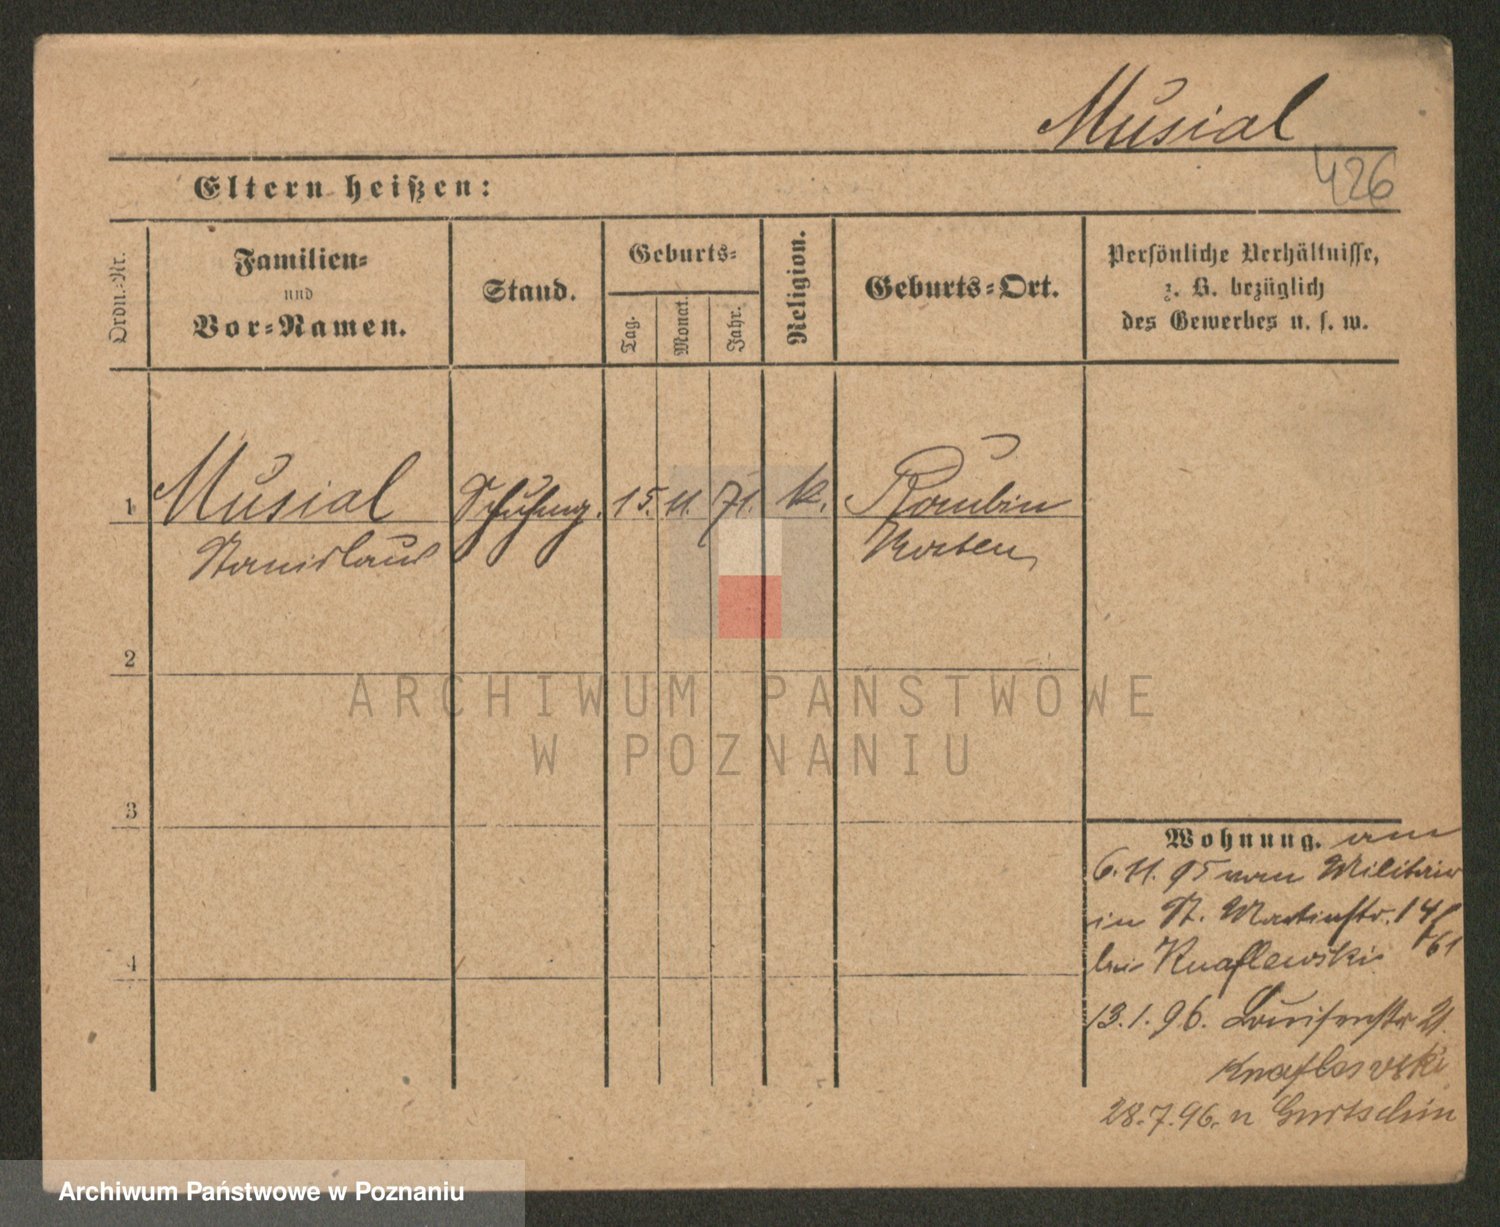 Musial
426
Eltern heißen:
Ordn.-Nr.
Familien-
und
Vor-Namen.
Stand.
Geburts-
Tag.
Monat.
Jahr.
Religion.
Geburts-Ort.
Persönliche Verhältnisse,
z. B. bezüglich
des Gewerbes u. s. w.
1
Musial
Stanislaus
15. 11. 71. k.
Kosten
2
3
4
Wohnung. am
6. 11. 95 vom Militair
in St. Martinstr. 14
61
bei Knaflewski
13. 1. 96. Louisenstr 21.
Knaflewski
28.7.96. n Gurtschin
ARCHIWUM PAŃSTWOWE
W POZNANIU
Archiwum Państwowe w Poznaniu